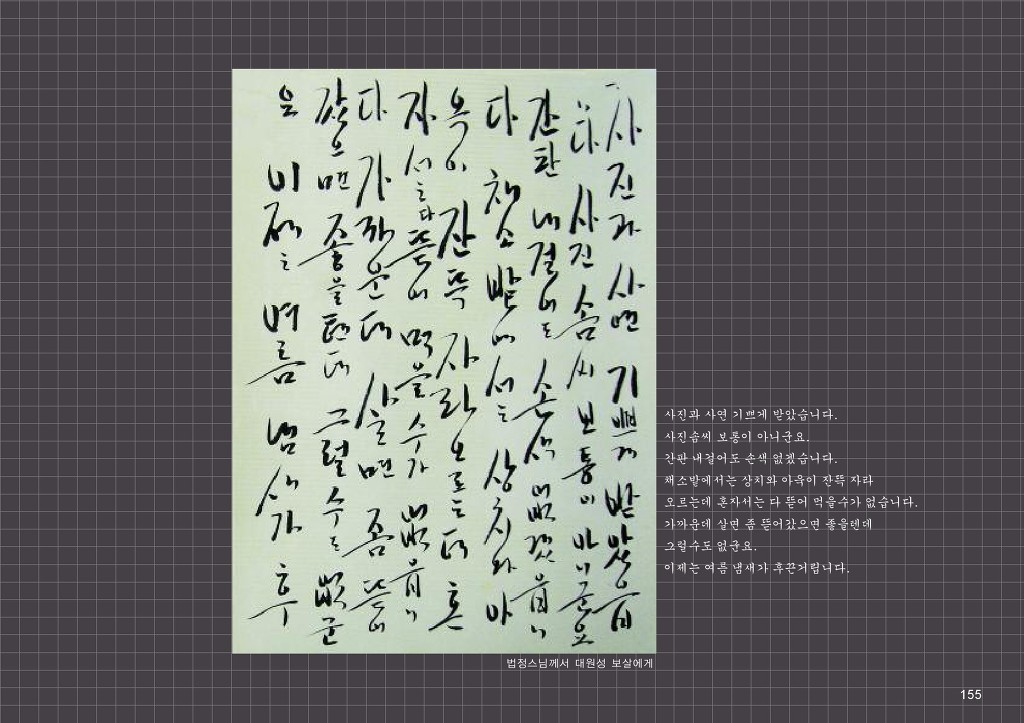 사진과 사연 기쁘게 받았읍
니다 사진 솜씨 보통이 아니군요
간판 내걸어도 손색 없겠읍니
다 채소밭에서는 상치와 아
욱이 잔뜩 자라오르는데 혼
자서는 다 뜯어 먹을 수가 없읍니
다 가까운데 살면 좀 뜯어
갔으면 좋을텐데 그럴 수는 없군
요 이제는 여름 냄새가 후
사진과 사연 기쁘게 받았습니다.
사진솜씨 보통이 아니군요.
간판 내걸어도 손색 없겠습니다.
채소밭에서는 상치와 아욱이 잔뜩 자라
오르는데 혼자서는 다 뜯어 먹을수가 없습니다.
가까운데 살면 좀 뜯어갔으면 좋을텐데
그럴수도 없군요.
이제는 여름 냄새가 후끈거립니다.
법정스님께서 대원성 보살에게
155